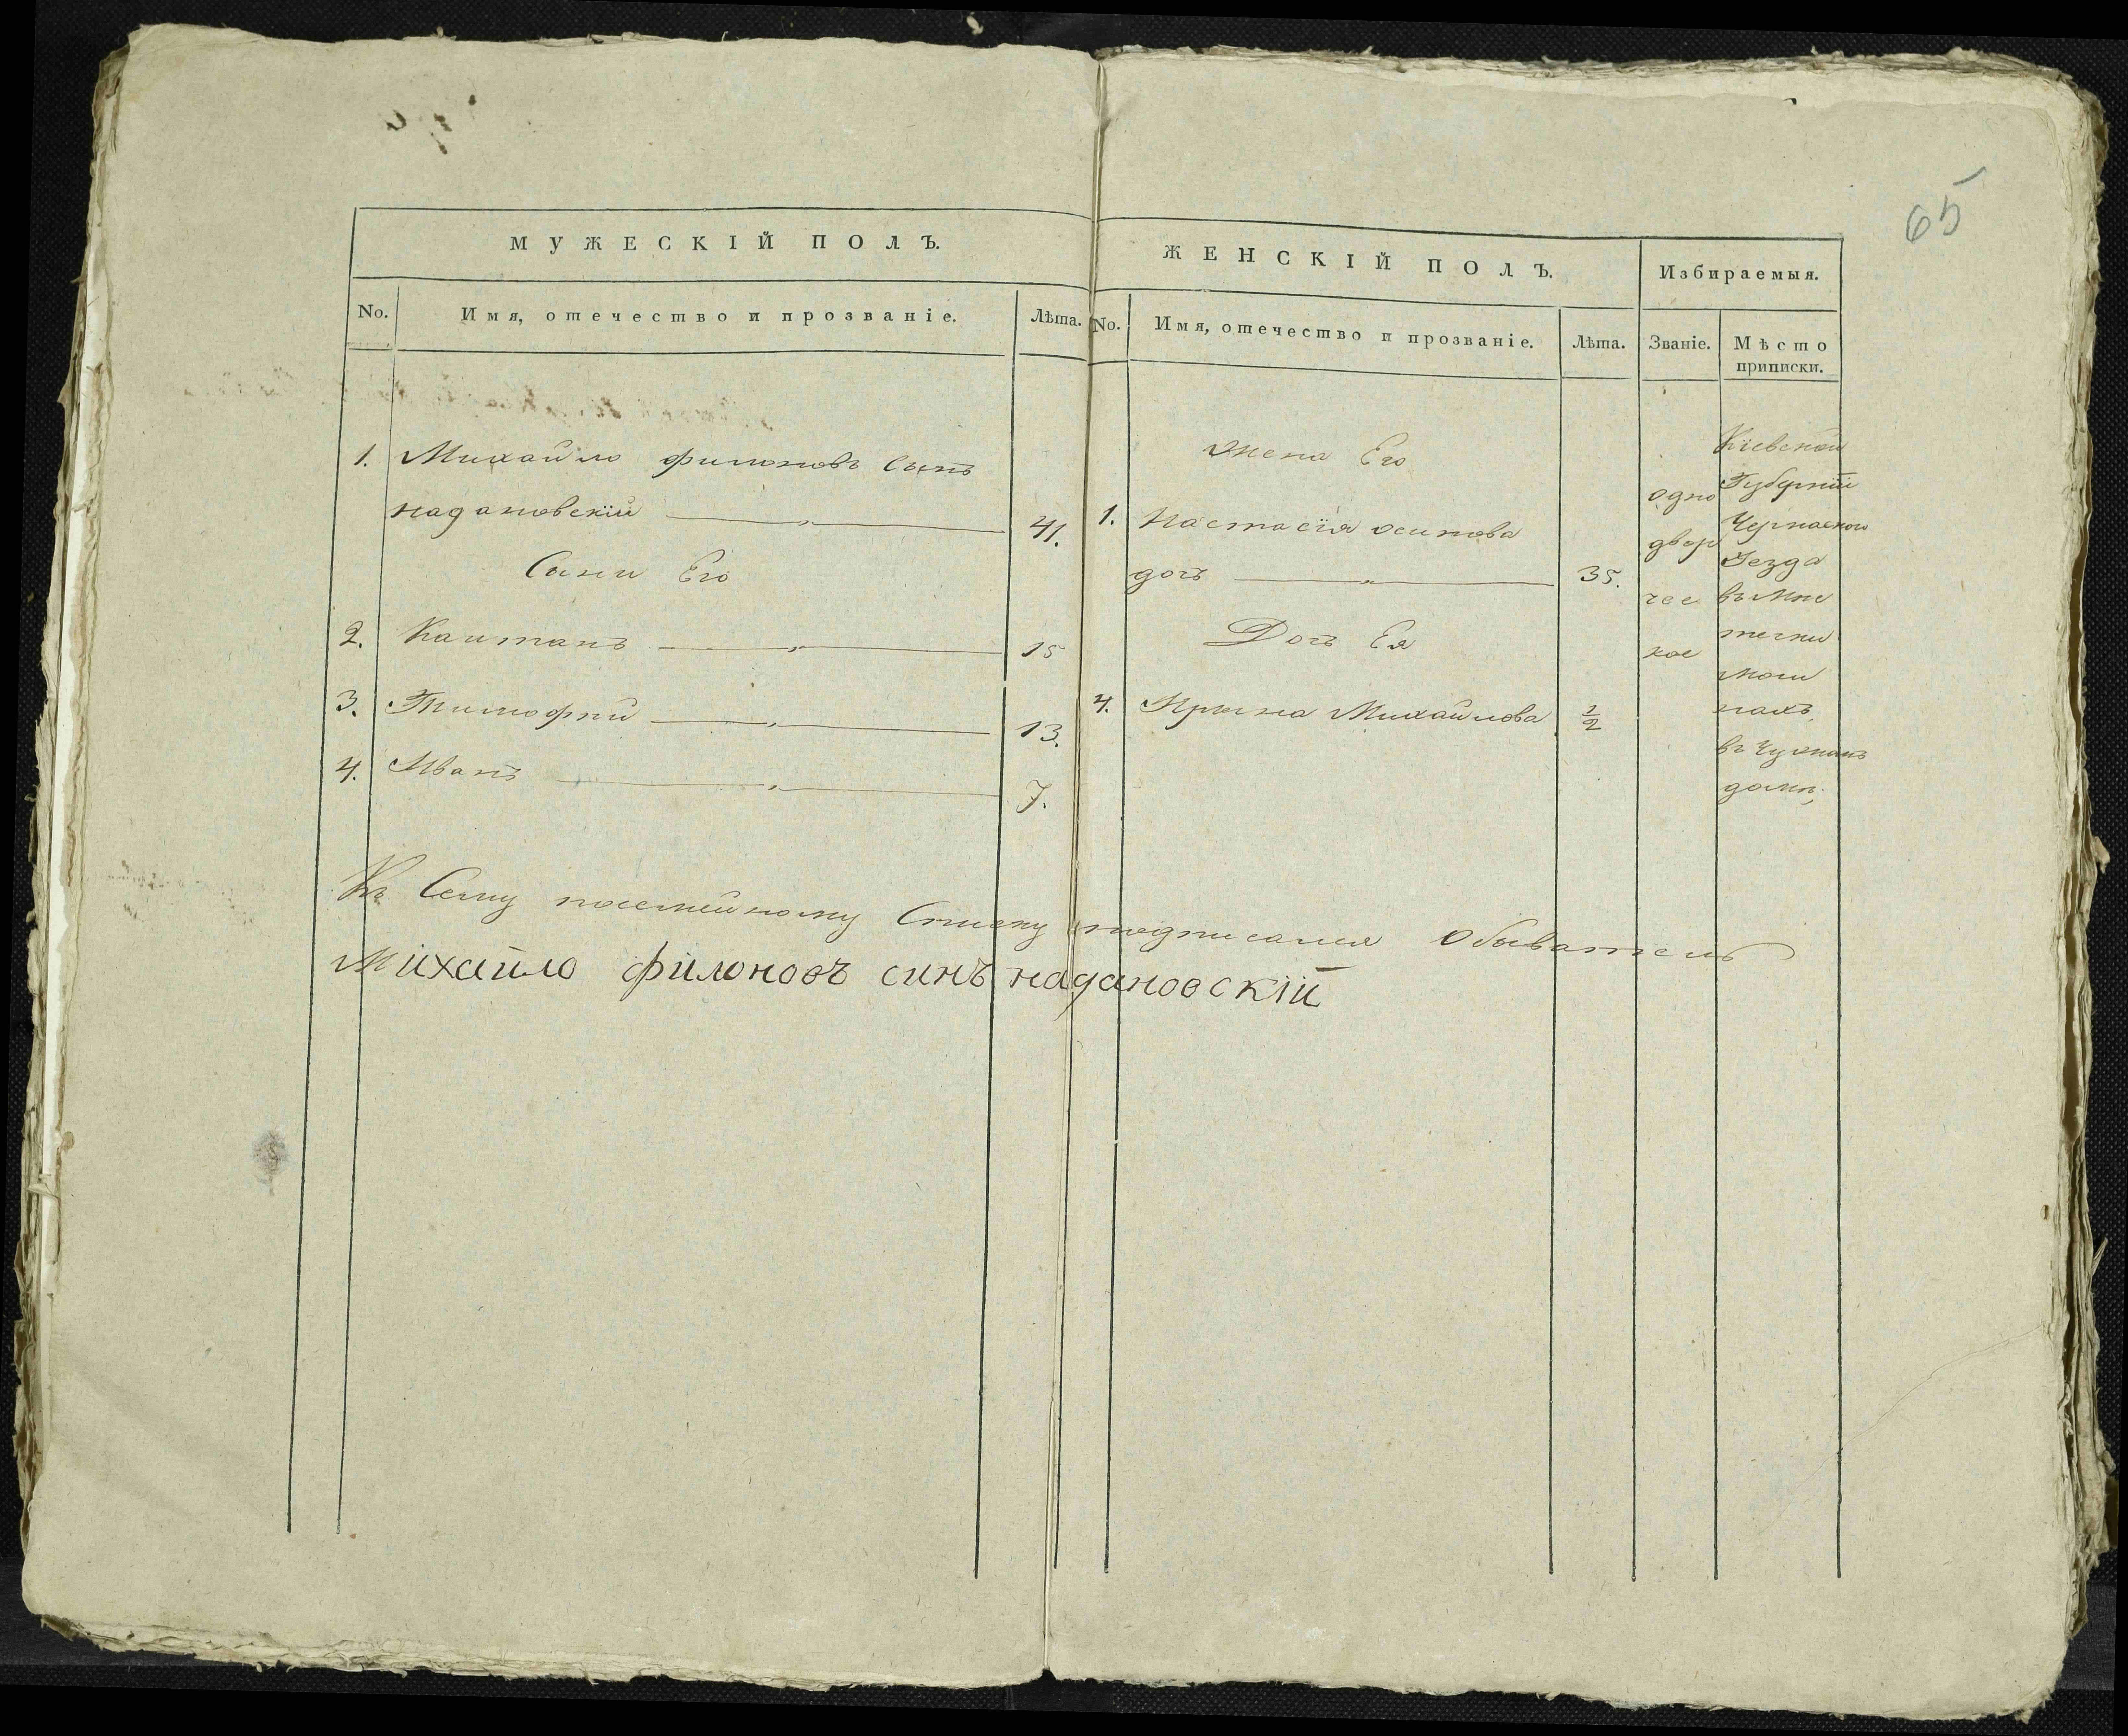 65
МУЖЕСКІЙ ПОЛЪ.
No. Имя, отечество и прозваніе. Лѣта.
1. Михайло филоновъ Сынъ
надановскїй 41.
Сыни Его
2. Каитанъ 15
3. Тимофѣй 13.
4. Иванъ 7.
ЖЕНСКІЙ ПОЛЪ.
No. Имя, отечество и прозваніе. Лѣта.
жена Его
1. Настасїя осипова
дочь 35.
Дочь Ея
4. Ирина Михайлова 1/2
Избираемыя.
Званіе.
одно
двор
чес
кое
Мѣсто
приписки.
Кїевской
Губернїи
Черкаского
Уезда
въ мѣс
течки
мош
нахъ
въ Чужомъ
домѣ,
Къ Сему посемейному Списку подписался Обыватель
Михайло філоновъ синъ надановскїй